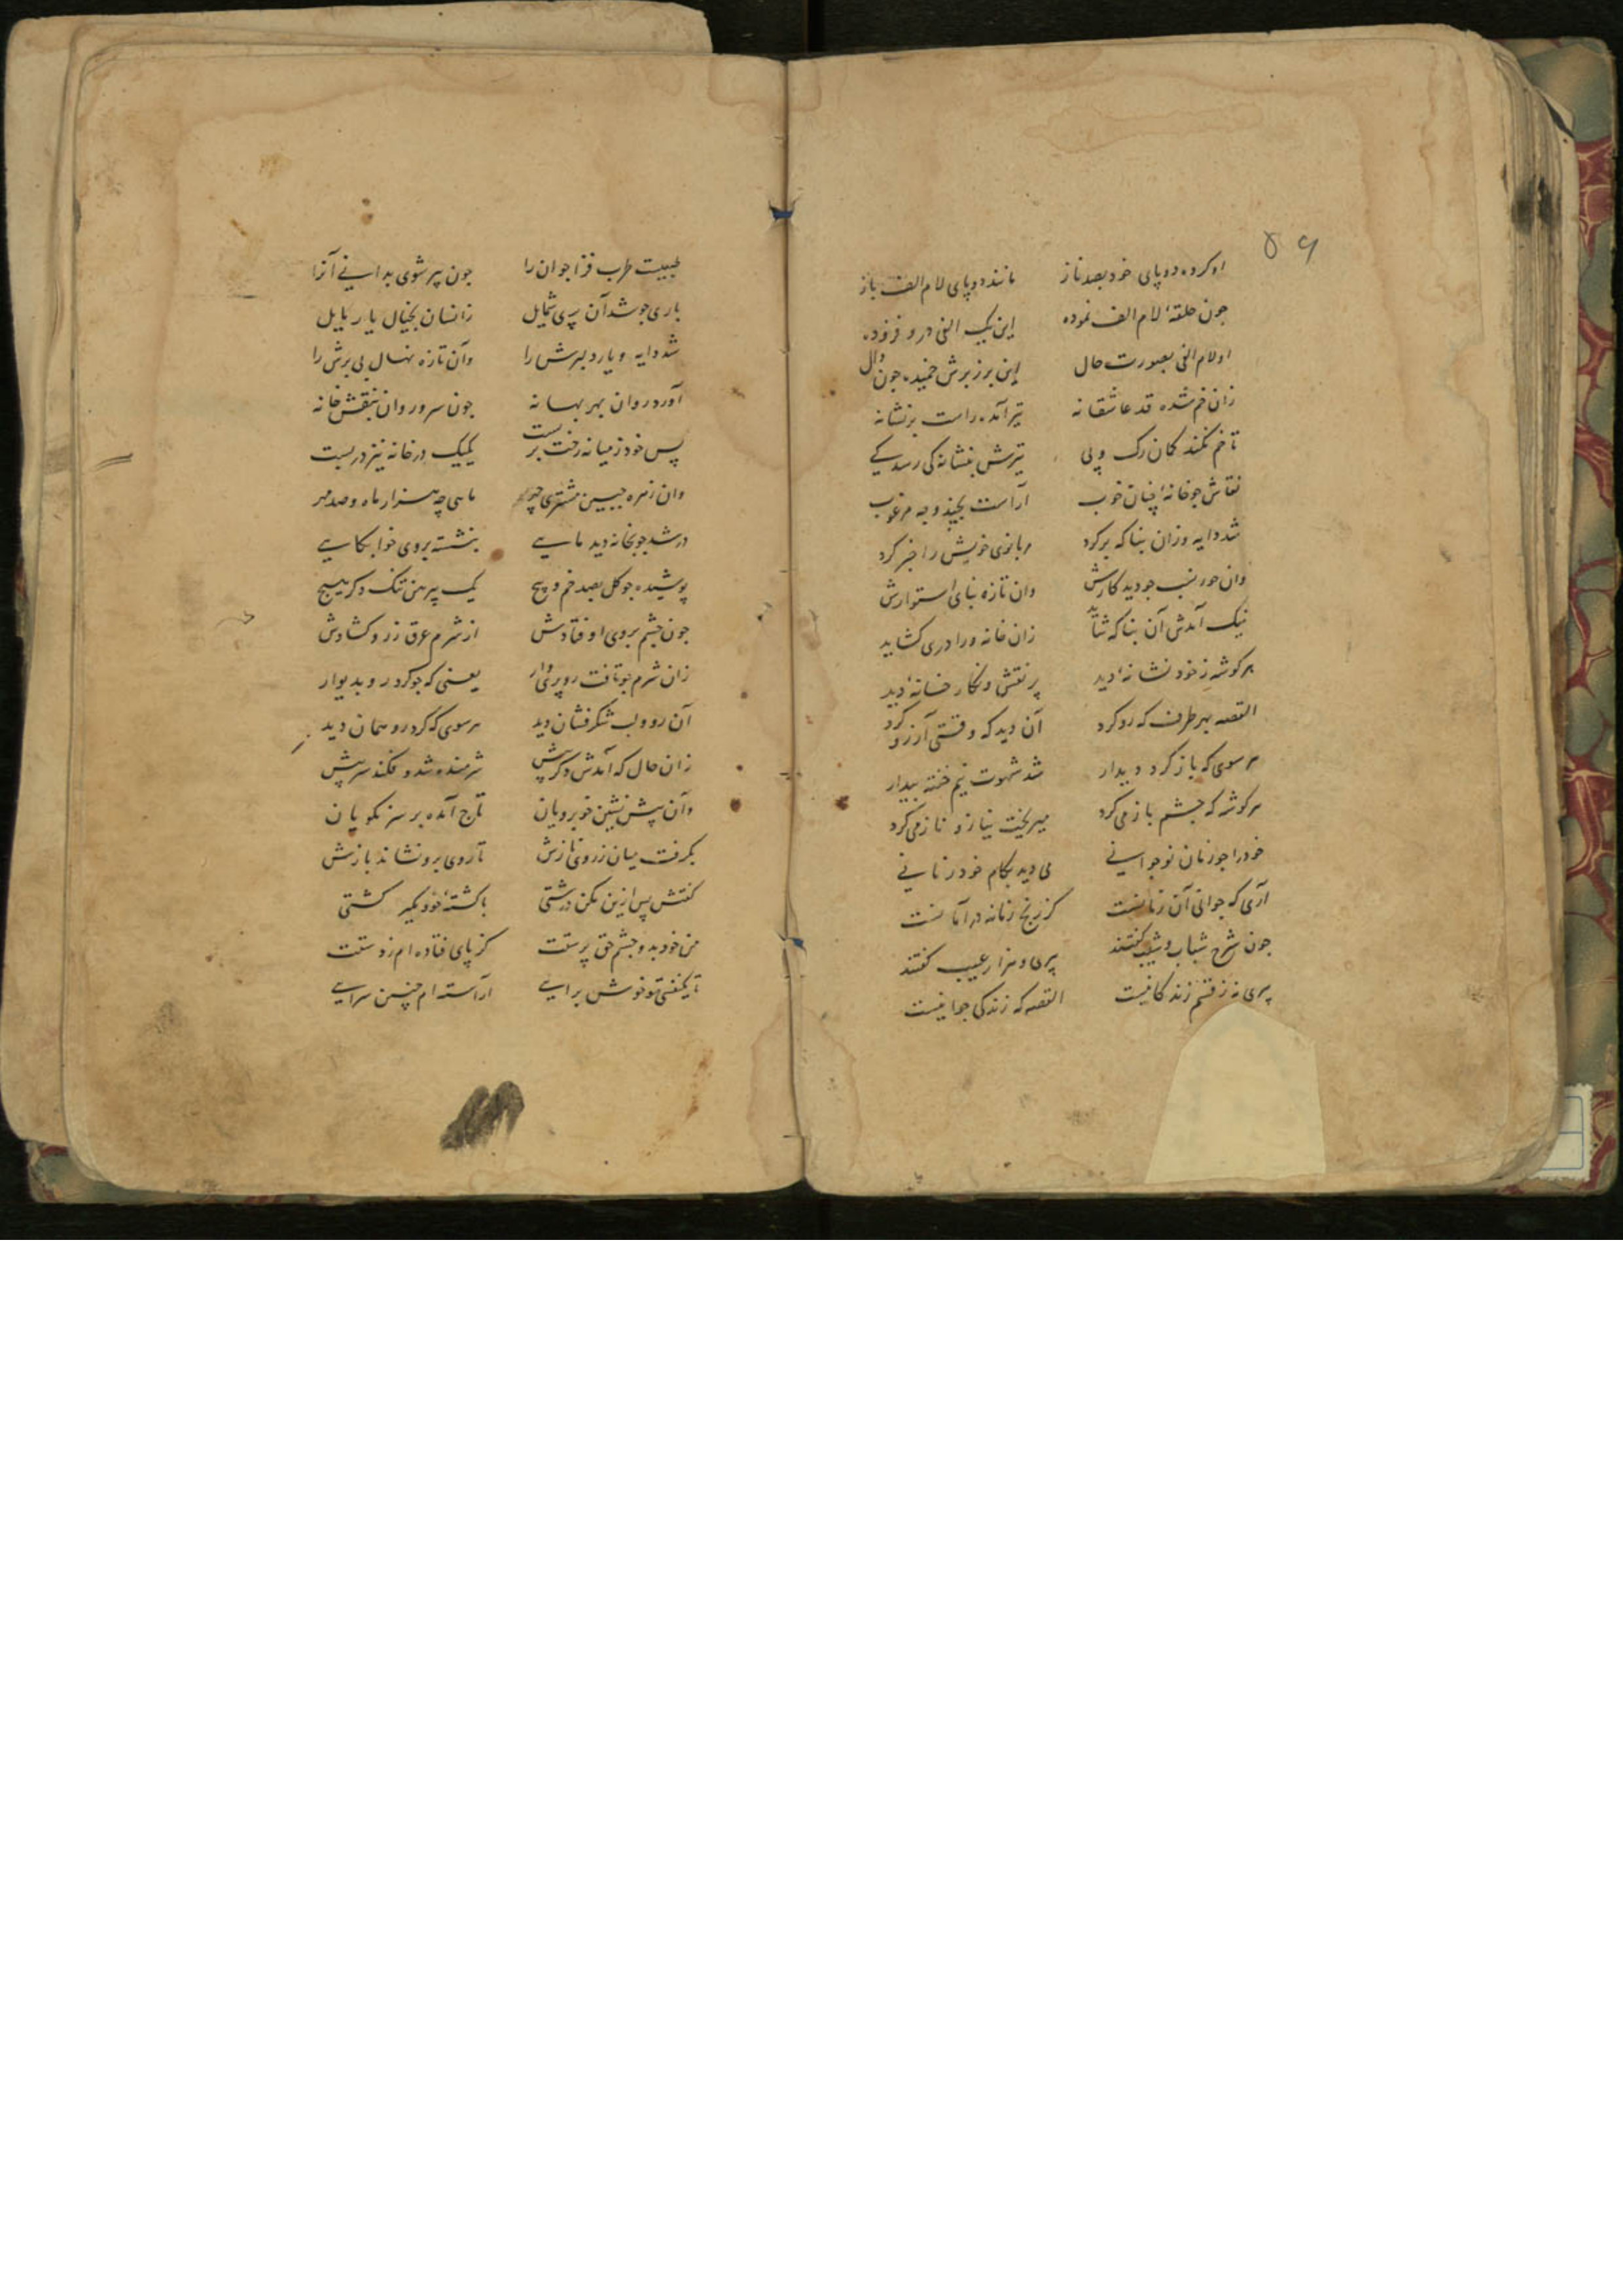 ۵۹
او کرده دو پای خود بصد ناز مانند دو پای لام الف باز
جون حلقهٔ لام الف نموده این یک الفی در و فزوده
او لام الفی بصورت حال این بر زبرش خمیده جون دال
زان خم شده قد عاشقانه تیر آمده راست بر نشانه
تا خم نکند کمان رک و پی تیرش بنشانه کی رسد کے
نقاش جو خانهٔ چنان خوب آراست بجند وجه مرغوب
شد دایه وزان بنا که بر کرد مر بانوی خویش را خبر کرد
وان حور نسب جو دید کارش وان تازه بنای استوارش
نیک آمدش آن بنا که شاید زان خانه ورا دری کشاید
هر کوشه ز خود نشانهٔ دید پر نقش و نکار خانهٔ دید
القصه بهر طرف که رو کرد آن دید که وقتی آرزو کرد
هر سوی که باز کرد دیدار شد شهوت نیم خفته بیدار
هر کوشه که جشم باز می کرد میریخت نیاز و ناز می کرد
خود را جو زنان نوجوانی می دید بکام خود زنانی
آری که جوانی آن زمانست کز رنج زمانه در امانست
جون شرح شباب و شیب کفتند پیری و هزار عیب کفتند
پیری نه ز قسم زندکانیست القصه که زندکی جوانیست
طیبیت طرب فزا جوان را جون پیر شوی بدانی آنرا
باری جو شد آن پری شمایل زانسان بخیال یار مایل
شد دایه و یار دلبرش را وآن تازه نهال بی برش را
آورد روان بهر بهانه جون سرو روان بنقش خانه
پس خود ز میانه رخت بر بست یک یک در خانه نیز در بست
وان زهره جبین مشتری جهر ماهی چه هزار ماه و صد مهر
در شد جو بخانه دید ماهے بنشسته بروی خوابکاهے
پوشیده جو کل بصد خم و پیچ یک پیرهن تنک دکر هیچ
جون جشم بروی او فتادش از شرم عرق ز رو کشادش
زان شرم جو تافت رو پری وار یعنی که جو کرد رو بدیوار
آن رو و لب شکرفشان دید هر سوی که کرد رو همان دید
زان حال که آمدش دکر پیش شرمنده شد و فکند سر پیش
وآن پیش نشین خوبرویان تاج آمده بر سر نکویان
بکرفت میان ز روی نازش تا روی برو نشاند بازش
کفتش پس ازین مکن درشتی با کشتهٔ خود مکیر کشتی
من خود بدو جشم حق پرستت کز پای فتاده ام ز دستت
تا یکنفسی تو خوش برایے آراسته ام چنین سرایے